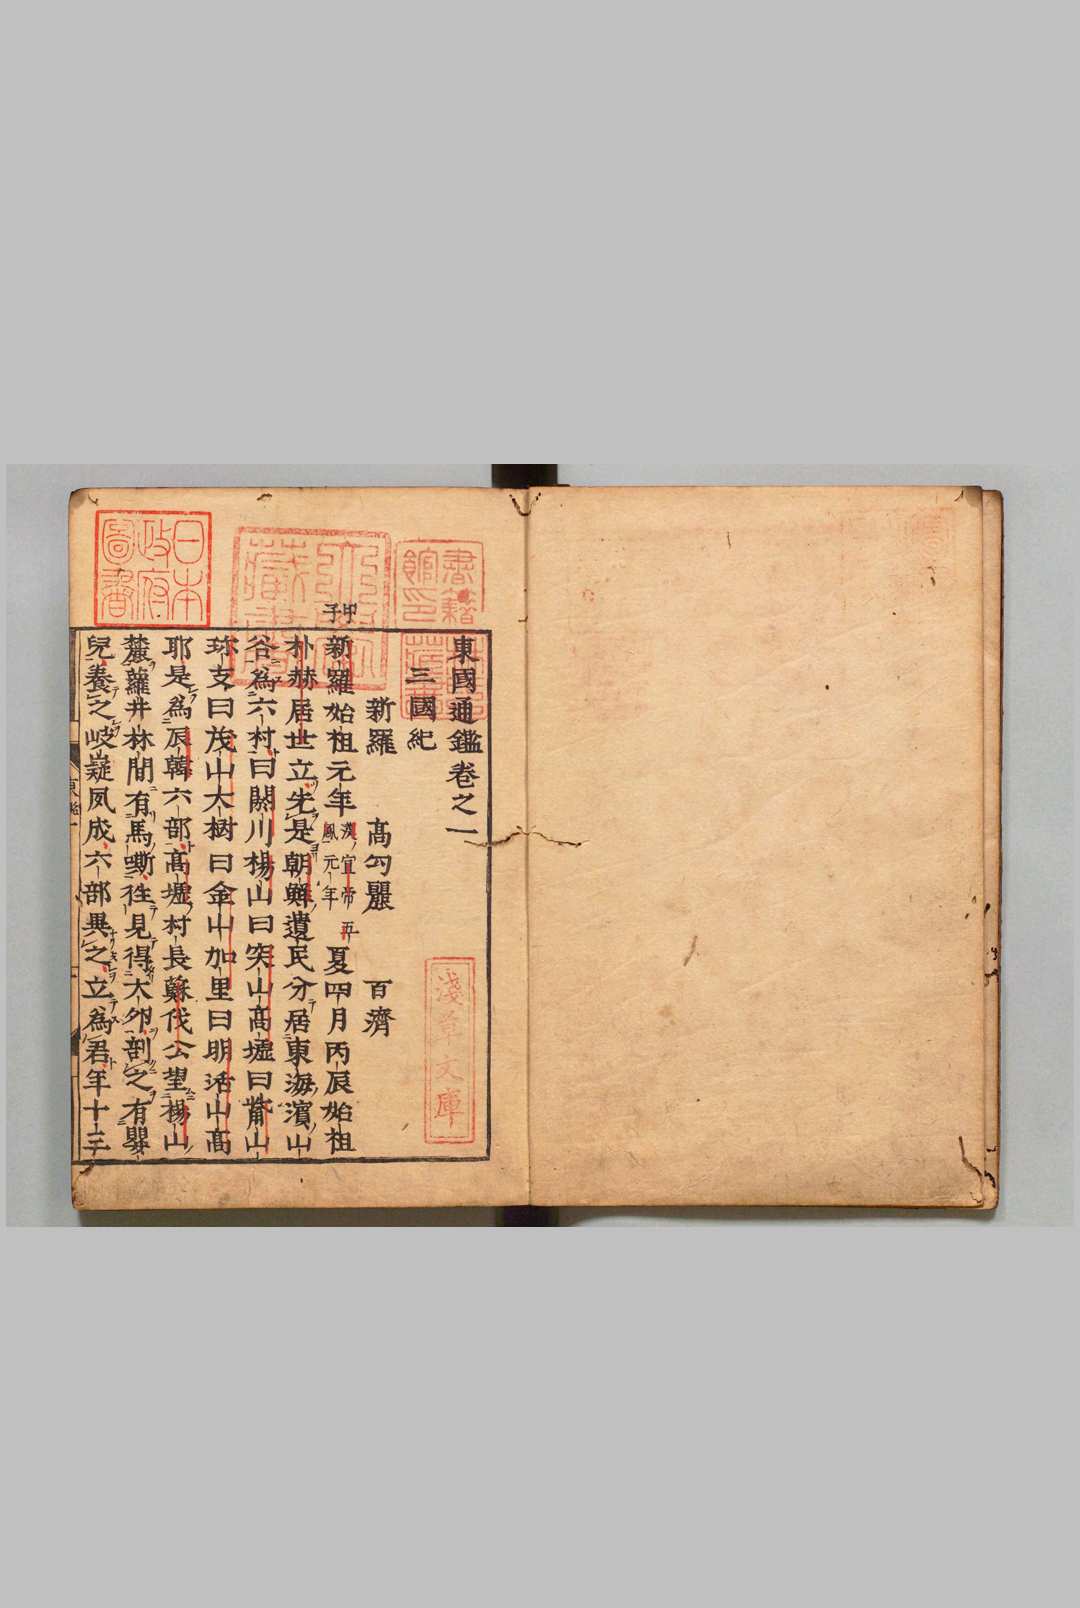 東國通鑑卷之一
三國紀
新羅 高勾麗 百濟
甲子
新羅始祖元年漢宣帝五鳳元年夏四月丙辰始祖
朴赫居世立先是朝鮮遺民分居東海濱山
谷爲六村曰閼川楊山曰突山高墟曰觜山
珍支曰茂山大樹曰金山加里曰明活山高
耶是爲辰韓六部高墟村長蘇伐公望楊山
麓蘿井林間有馬嘶往見得大卵剖之有嬰
兒養之岐嶷夙成六部異之立爲君年十三
日本政府圖書
書籍館印
淺草文庫